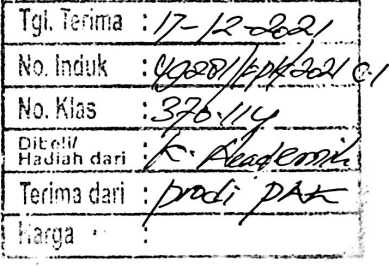 Tgl. Terima : 17-12-2021
No. Induk : 490281/KPK/2021 c.1
No. Klas : 370.114
Dibeli/
Hadiah dari : K. Akademik
Terima dari : prodi PAK
Harga :